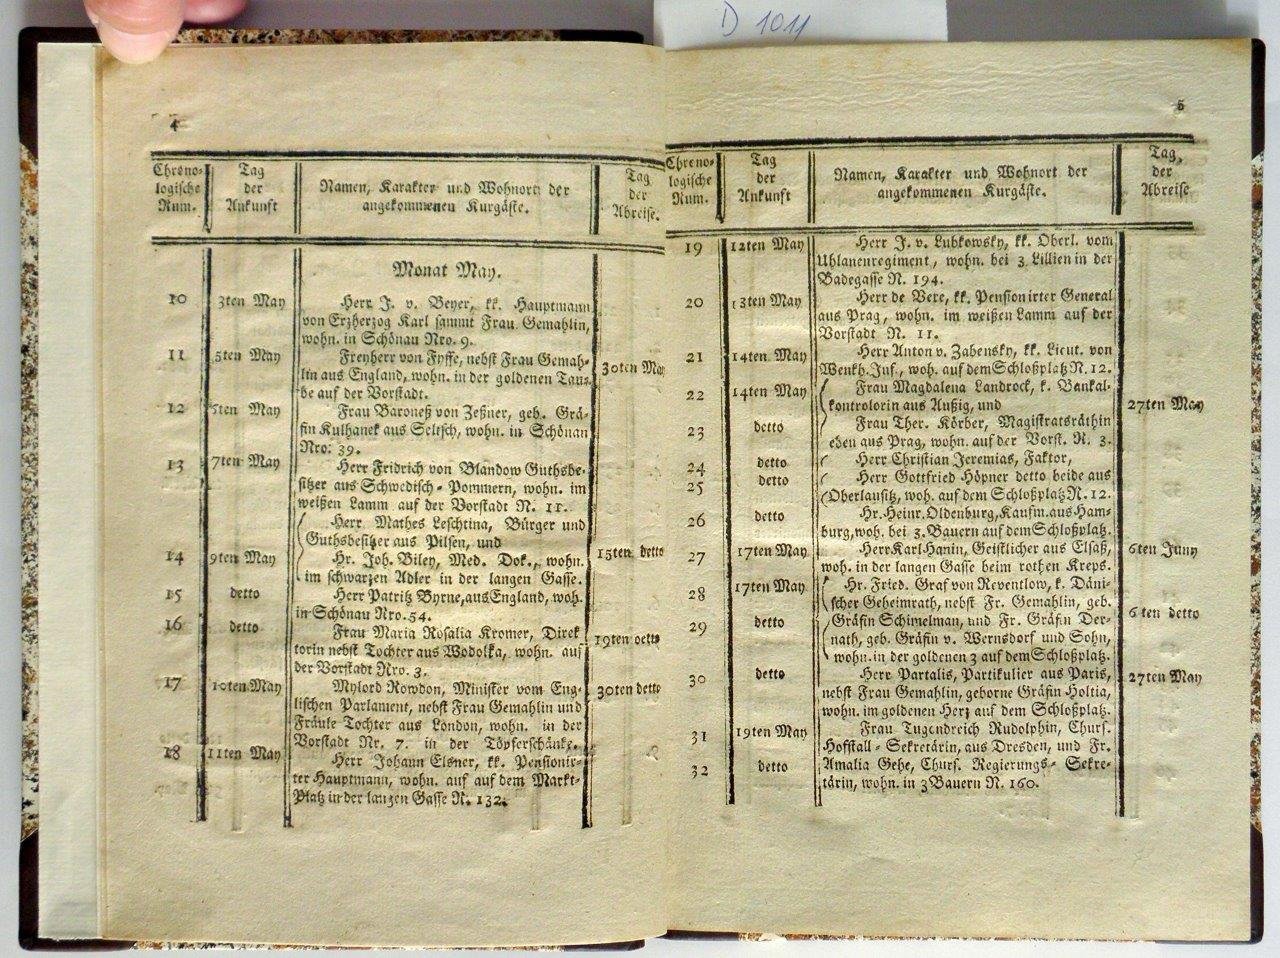 D 1011
4
Chrono-
logische
Num.
Tag
der
Ankunft
Namen, Karakter und Wohnort der
angekommenen Kurgäste.
Tag
der
Abreise.
Monat May.
10 3ten May Herr J. v. Beyer, kk. Hauptmann
von Erzherzog Karl sammt Frau Gemahlin,
wohn. in Schönau Nro. 9.
11 5ten May Freyherr von Fyffe, nebst Frau Gemah-
lin aus England, wohn. in der goldenen Tau- 30ten May
be auf der Vorstadt.
12 5ten May Frau Baroneß von Zeßner, geb. Grä-
fin Kulhanek aus Seltsch, wohn. in Schönau
Nro. 39.
13 7ten May Herr Fridrich von Blandow Guthsbe-
sitzer aus Schwedisch-Pommern, wohn. im
weißen Lamm auf der Vorstadt N. 11.
Herr Mathes Leschtina, Bürger und
Guthsbesitzer aus Pilsen, und
14 9ten May Hr. Joh. Biley, Med. Dok., wohn. 15ten detto
im schwarzen Adler in der langen Gasse.
15 detto Herr Patritz Byrne, aus England, woh.
in Schönau Nro. 54.
16 detto Frau Maria Rosalia Kromer, Direk 19ten detto
torin nebst Tochter aus Wodolka, wohn. auf
der Vorstadt Nro. 3.
17 10ten May Mylord Rowdon, Minister vom Eng- 30ten detto
lischen Parlament, nebst Frau Gemahlin und
Fräule Tochter aus London, wohn. in der
Vorstadt Nr. 7. in der Töpferschänke.
18 11ten May Herr Johann Elsner, kk. Pensionir-
ter Hauptmann, wohn. auf auf dem Markt-
Platz in der langen Gasse N. 132.
5
Chrono-
logische
Num.
Tag
der
Ankunft
Namen, Karakter und Wohnort der
angekommenen Kurgäste.
Tag,
der
Abreise
19 12ten May Herr J. v. Lubkowsky, kk. Oberl. vom
Uhlanenregiment, wohn. bei 3 Lillien in der
Badegasse N. 194.
20 13ten May Herr de Vere, kk. Pensionirter General
aus Prag, wohn. im weißen Lamm auf der
Vorstadt N. 11.
21 14ten May Herr Anton v. Zabensky, kk. Lieut. von
Wenkh. Inf., woh. auf dem Schloßplatz N. 12.
22 14ten May Frau Magdalena Landrock, k. Bankal-
kontrolorin aus Außig, und 27ten May
23 detto Frau Ther. Körber, Magistratsräthin
eben aus Prag, wohn. auf der Vorst. N. 3.
24 detto Herr Christian Jeremias, Faktor,
25 detto Herr Gottfried Höpner detto beide aus
Oberlausitz, woh. auf dem Schloßplatz N. 12.
26 detto Hr. Heinr. Oldenburg, Kaufm. aus Ham-
burg, woh. bei 3 Bauern auf dem Schloßplatz.
27 17ten May Herr Karl Hanin, Geistlicher aus Elsaß, 6ten Juny
woh. in der langen Gasse beim rothen Kreps.
28 17ten May Hr. Fried. Graf von Reventlow, k. Däni-
scher Geheimrath, nebst Fr. Gemahlin, geb.
29 detto Gräfin Schimelman, und Fr. Gräfin Der- 6ten detto
nath, geb. Gräfin v. Wernsdorf und Sohn,
wohn. in der goldenen 3 auf dem Schloßplatz.
30 detto Herr Partalis, Partikulier aus Paris, 27ten May
nebst Frau Gemahlin, geborne Gräfin Holtia,
wohn. im goldenen Herz auf dem Schloßplatz.
31 19ten May Frau Tugendreich Rudolphin, Churs.
Hofstall-Sekretärin, aus Dresden, und Fr.
32 detto Amalia Gehe, Churs. Regierungs-Sekre-
tärin, wohn. in 3 Bauern N. 160.